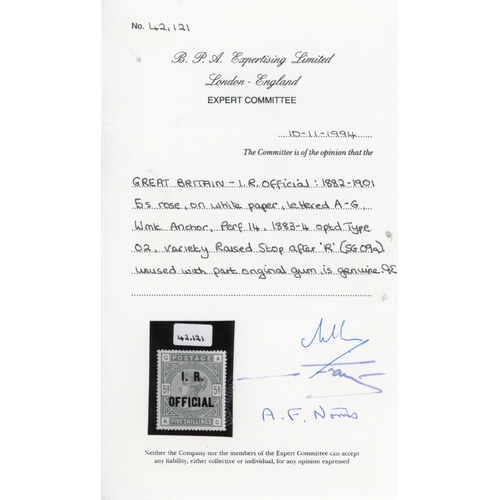 No. 42,121
B. P. A. Expertising Limited
London - England
EXPERT COMMITTEE
10-11-1994
The Committee is of the opinion that the
GREAT BRITAIN - I.R. Official : 1882-1901
5s rose, on white paper, lettered A-G,
Wmk Anchor, Perf 14, 1883-4 optd Type
02, variety Raised Stop after 'R' (SG 09a)
unused with part original gum is genuine
42,121
G POSTAGE A
I. R.
5/ 5/
OFFICIAL
A FIVE SHILLINGS G
A. F. Norris
Neither the Company nor the members of the Expert Committee can accept
any liability, either collective or individual, for any opinion expressed